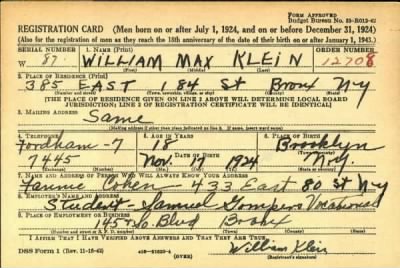 FORM APPROVED
Budget Bureau No. 33-R012-42
REGISTRATION CARD (Men born on or after July 1, 1924, and on or before December 31, 1924)
(Also for the registration of men as they reach the 18th anniversary of the date of their birth on or after January 1, 1943.)
SERIAL NUMBER 1. NAME (Print) ORDER NUMBER
W 87 WILLIAM MAX KLEIN 12708
2. PLACE OF RESIDENCE (Print)
385 EAST 184 St Bronx N-y
(Number and street) (Town, township, village, or city) (County) (State)
[THE PLACE OF RESIDENCE GIVEN ON LINE 2 ABOVE WILL DETERMINE LOCAL BOARD
JURISDICTION; LINE 2 OF REGISTRATION CERTIFICATE WILL BE IDENTICAL]
3. MAILING ADDRESS
Same
[Mailing address if other than place indicated on line 2. If same, insert word same]
4. TELEPHONE 5. AGE IN YEARS 6. PLACE OF BIRTH
Fordham-7 18 Brooklyn
DATE OF BIRTH
7445 Nov. 17 1924 N.Y.
7. NAME AND ADDRESS OF PERSON WHO WILL ALWAYS KNOW YOUR ADDRESS
Fannie Cohen - 433 East 80 St N-y
8. EMPLOYER'S NAME AND ADDRESS
Student - Samuel Gompers Vocational
9. PLACE OF EMPLOYMENT OR BUSINESS
145+So. Blvd Bronx
I AFFIRM THAT I HAVE VERIFIED ABOVE ANSWERS AND THAT THEY ARE TRUE.
DSS Form 1 (Rev. 11-16-42) (OVER)
William Klein
(Registrant's signature)